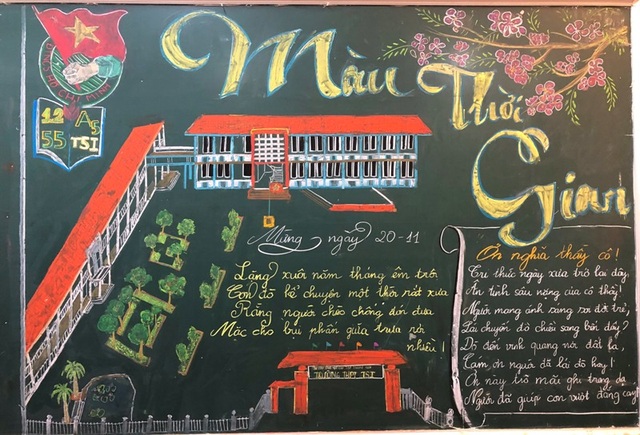 Màu
Thời
Gian
12 A5
55 TSI
Mừng ngày 20-11
Lặng xuôi năm tháng êm trôi
Con đò kể chuyện một thời rất xưa
Rằng người chèo chống đón đưa
Mặc cho bụi phấn giữa trưa rơi
nhiều!
TRƯỜNG THPT TSI
Ơn nghĩa thầy cô!
Tri thức ngày xưa trở lại đây,
Ân tình sâu nặng của cô thầy!
Người mang ánh sáng soi đời trẻ,
Lái chuyến đò chiều sang bến đây?
Dò đến vinh quang nơi đất lạ.
Cám ơn người đã lái đò hay!
Ơn này trò mãi ghi trong dạ
Người đã giúp con vượt đắng cay!